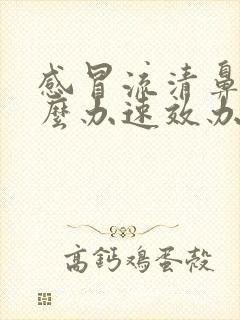 感冒流清鼻
麼办速效办
高鈣鸡蛋殼